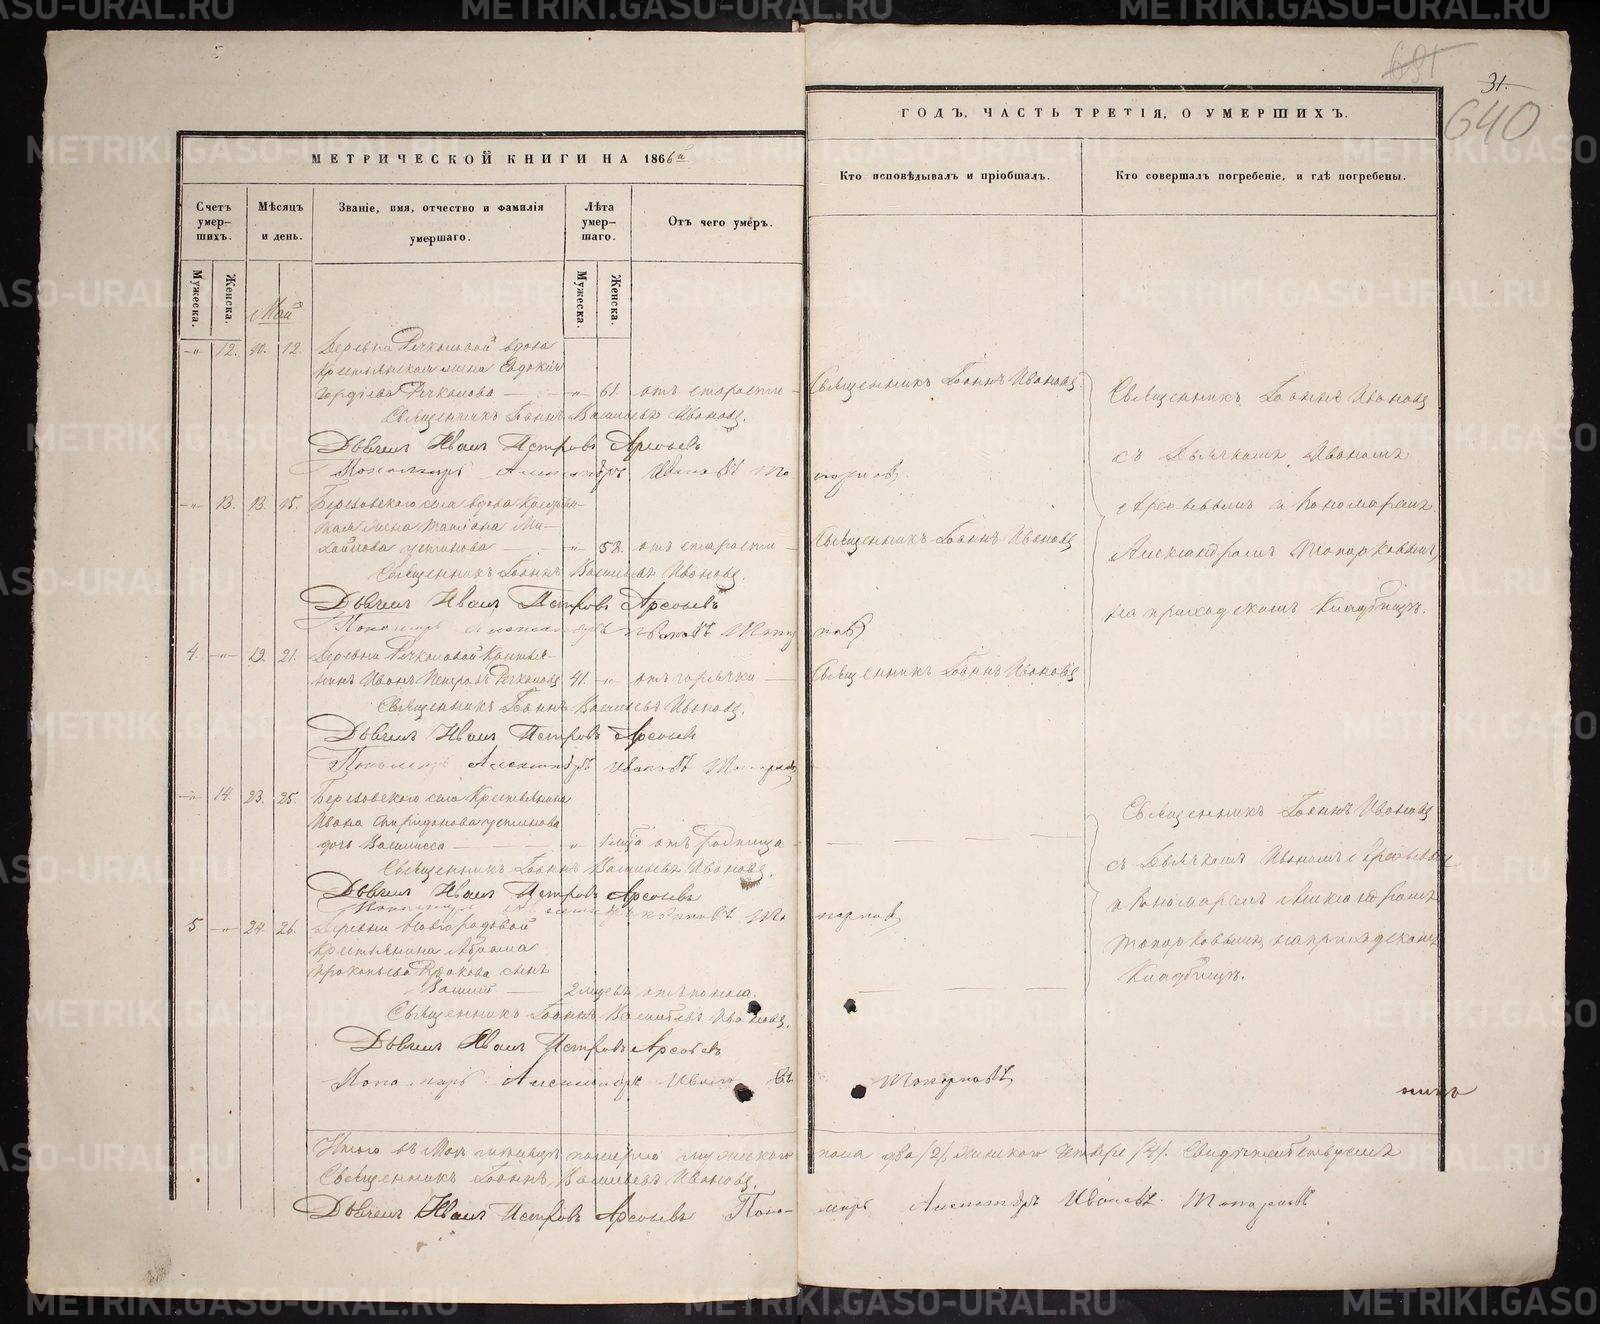 METRIKI.GASO-URAL.RU
681
31.
640
МЕТРИЧЕСКОЙ КНИГИ НА 1866й
ГОДЪ, ЧАСТЬ ТРЕТІЯ, О УМЕРШИХЪ.
Счетъ умер-шихъ.
Мужеска.
Женска.
Мѣсяцъ и день.
Званіе, имя, отчество и фамилія умершаго.
Лѣта умер-шаго.
Мужеска.
Женска.
Отъ чего умеръ.
Кто исповѣдывалъ и пріобщалъ.
Кто совершалъ погребеніе, и гдѣ погребены.
Май
-"- 12. 10. 12. Деревни Речкаловой вдова
Крестьянская жена Евдокія
Гордѣева Речкалова -"- 61. отъ старости
Священникъ Іоаннъ Ивановъ
Священникъ Іоаннъ Васильевъ Ивановъ.
Дьячекъ Иванъ Петровъ Арсеньевъ
Пономарь Александръ Ивановъ То
порковъ
-"- 13. 13. 15. Березовскаго села вдова Крестьян-
ская жена Татіана Ми-
хайлова Устинова -"- 58. отъ старости
Священникъ Іоаннъ Ивановъ
Священникъ Іоаннъ Васильевъ Ивановъ.
Дьячекъ Иванъ Петровъ Арсеньевъ
Пономарь Александръ Ивановъ
4. -"- 19. 21. Деревни Речкаловой Крестья-
нинъ Иванъ Петровъ Речкаловъ 41. -"- отъ горячки
Священникъ Іоаннъ Ивановъ
Священникъ Іоаннъ Васильевъ Ивановъ.
Дьячекъ Иванъ Петровъ Арсеньевъ
Пономарь Александръ Ивановъ Топорковъ
Священникъ Іоаннъ Ивановъ
съ Дьячкомъ Иваномъ
Арсеньевымъ и Пономаремъ
Александромъ Топорковымъ,
на приходскомъ Кладбищѣ.
-"- 14. 23. 25. Березовскаго села Крестьянина
Ивана Спиридонова Устинова
дочь Васса -"- 1 отъ родимца
Священникъ Іоаннъ Васильевъ Ивановъ.
Дьячекъ Иванъ Петровъ Арсеньевъ
Пономарь Александръ Ивановъ То
порковъ
5 -"- 24. 26. Деревни
Крестьянина Абрама
Прокопьева сынъ
2 мѣсяц. отъ поноса.
Священникъ Іоаннъ Васильевъ Ивановъ.
Дьячекъ Иванъ Петровъ Арсеньевъ
Пономарь Александръ Ивановъ Топорковъ
Священникъ Іоаннъ Ивановъ
съ Дьячкомъ Иваномъ Арсеньевымъ
и Пономаремъ Александромъ
Топорковымъ, на приходскомъ
Кладбищѣ.
Итого въ Маѣ мѣсяцѣ померло мужескаго пола два /2/ женскаго четыре /4/. Свидѣтельствуемъ
Священникъ Іоаннъ Васильевъ Ивановъ.
Дьячекъ Иванъ Петровъ Арсеньевъ Поно-
марь Александръ Ивановъ Топорковъ